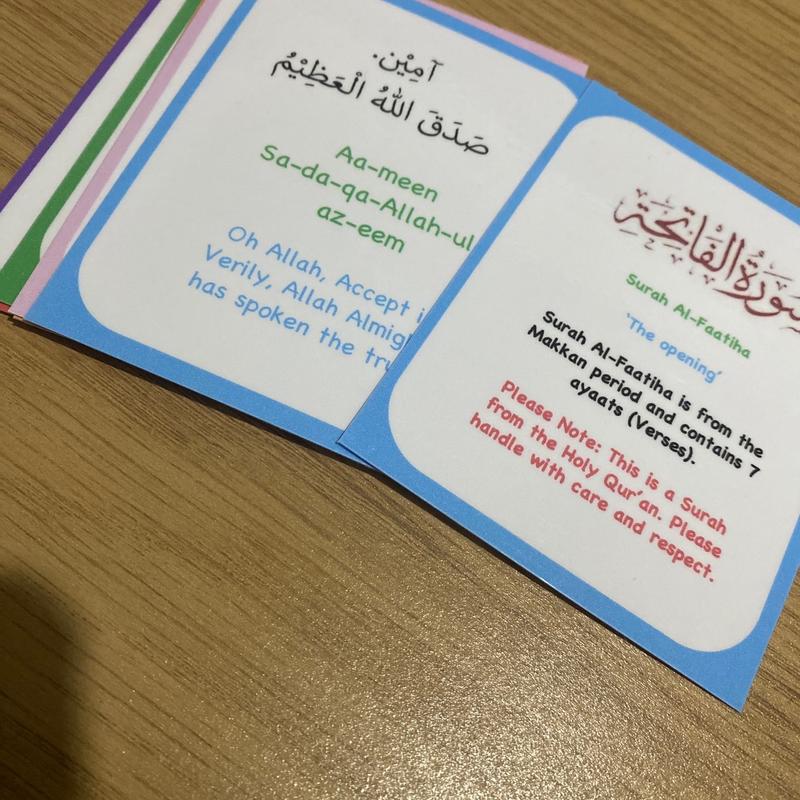 آمِيْن.
صَدَقَ اللهُ الْعَظِيْمُ
Aa-meen
Sa-da-qa-Allah-ul
az-eem
Oh Allah, Accept
Verily, Allah
has spoken the
سورة الفاتحة
Surah Al-Faatiha
'The opening'
Surah Al-Faatiha is from the
Makkan period and contains 7
ayaats (Verses).
Please Note: This is a Surah
from the Holy Qur'an. Please
handle with care and respect.